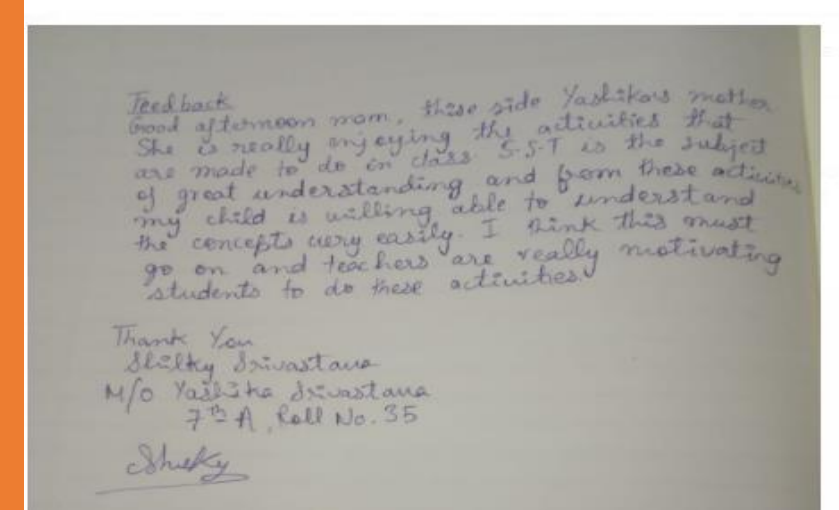 Feedback
Good afternoon mam, thise side Yashika's mother
She is really enjoying the activities that
are made to do in class. S.S.T is the subject
of great understanding and from these activities
my child is willing able to understand
the concepts very easily. I think this must
go on and teachers are really motivating
students to do these activities.
Thank You
Shilky Srivastava
M/O Yashika Srivastava
7th A, Roll No. 35
Shilky